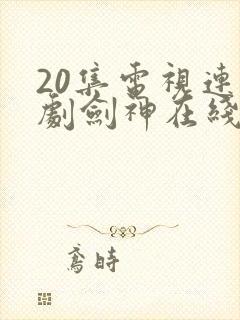 20集電視連
劇劍神在綫
鳶時